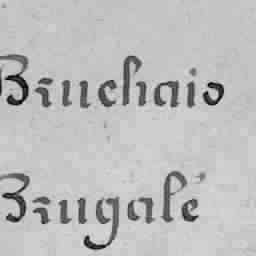 Bruchaio
Brugalé